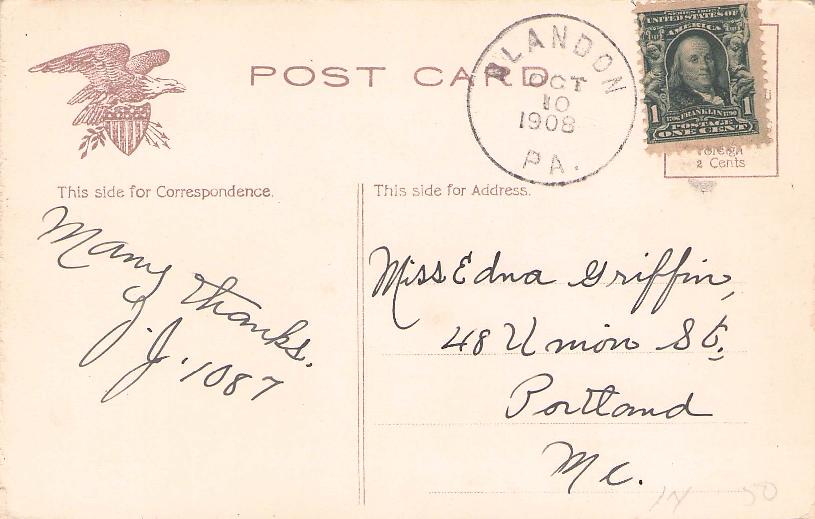 POST CARD
BLANDON
OCT
10
1908
PA.
SERIES 1902
UNITED STATES OF
AMERICA
1 FRANKLIN 1
POSTAGE
ONE CENT
Foreign
2 Cents
This side for Correspondence.
This side for Address.
Many thanks.
J. J. 1087
Miss Edna Griffin,
48 Union St.,
Portland
Me.